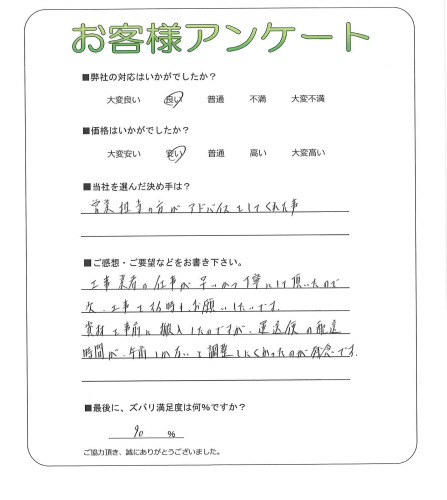 お客様アンケート
■弊社の対応はいかがでしたか？
大変良い 良い 普通 不満 大変不満
■価格はいかがでしたか？
大変安い 安い 普通 高い 大変高い
■当社を選んだ決め手は？
営業担当の方がアドバイスをしてくれた事
■ご感想・ご要望などをお書き下さい。
工事業者の仕事が早いかつ丁寧にして頂いたので
次の工事も お願いしたいです。
資材を事前に搬入したのですが、運送便の配送
時間が、午前しかないと調整しにくかったのが残念です。
■最後に、ズバリ満足度は何％ですか？
90 ％
ご協力頂き、誠にありがとうございました。